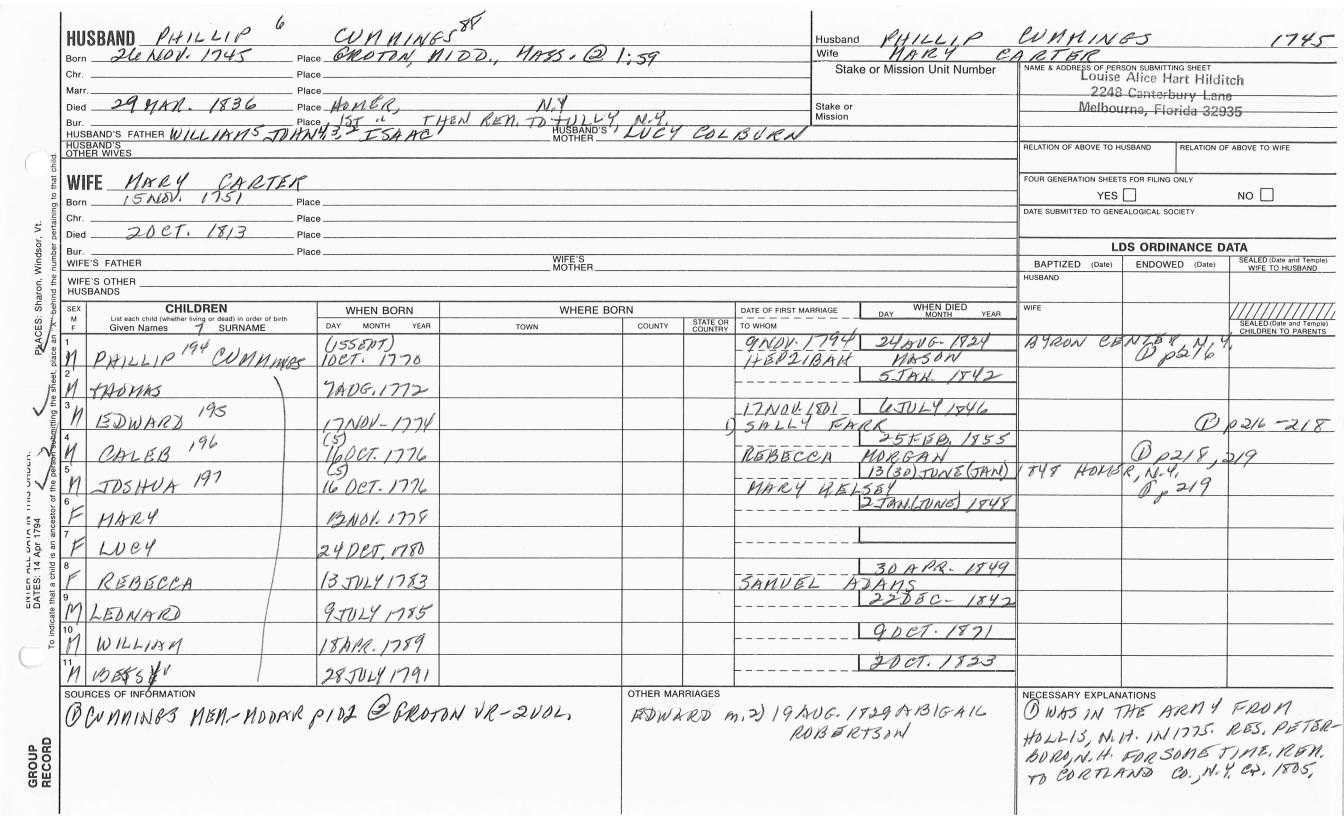 HUSBAND PHILLIP 6 CUMMINGS 88
Born 26 NOV. 1745 Place GROTON, MIDD., MASS. @ 1:59
Chr. Place
Marr. Place
Died 29 MAR. 1836 Place HOMER, N.Y
Bur. Place 1ST " THEN REM. TO TULLY, N.Y.
HUSBAND'S FATHER WILLIAM5 JOHN4,3,2 ISAAC1 HUSBAND'S MOTHER LUCY COLBURN
HUSBAND'S OTHER WIVES
Husband PHILLIP CUMMINGS 1745
Wife MARY CARTER
Stake or Mission Unit Number
Stake or Mission
NAME & ADDRESS OF PERSON SUBMITTING SHEET
Louise Alice Hart Hilditch
2248 Canterbury Lane
Melbourne, Florida 32935
RELATION OF ABOVE TO HUSBAND RELATION OF ABOVE TO WIFE
FOUR GENERATION SHEETS FOR FILING ONLY
YES NO
DATE SUBMITTED TO GENEALOGICAL SOCIETY
WIFE MARY CARTER
Born 15 NOV. 1751 Place
Chr. Place
Died 2 OCT. 1813 Place
Bur. Place
WIFE'S FATHER WIFE'S MOTHER
WIFE'S OTHER HUSBANDS
LDS ORDINANCE DATA
BAPTIZED (Date) ENDOWED (Date) SEALED (Date and Temple) WIFE TO HUSBAND
HUSBAND
WIFE
SEALED (Date and Temple) CHILDREN TO PARENTS
SEX M F CHILDREN WHEN BORN WHERE BORN DATE OF FIRST MARRIAGE WHEN DIED
List each child (whether living or dead) in order of birth
Given Names 7 SURNAME DAY MONTH YEAR TOWN COUNTY STATE OR COUNTRY TO WHOM DAY MONTH YEAR
1 (15 SEPT) 9 NOV. 1794 24 AUG. 1824 BYRON CENTER, N.Y.
M PHILLIP 194 CUMMINGS 1 OCT. 1770 HEPZIBAH MASON ① p216
2 5 JAN. 1842
M THOMAS 7 AUG. 1772
3 17 NOV. 1801 6 JULY 1846
M EDWARD 195 17 NOV - 1774 1) SALLY FARR ① p216-218
4 (5) 25 FEB. 1855
M CALEB 196 16 OCT. 1776 REBECCA MORGAN ① p218, 219
5 (5) 13 (30) JUNE (JAN) 1848 HOMER, N.Y.
M JOSHUA 197 16 OCT. 1776 MARY KELSEY ① p219
6 2 JAN. (JUNE) 1848
F MARY 13 NOV. 1778
7
F LUCY 24 OCT. 1780
8 30 APR. 1849
F REBECCA 13 JULY 1783 SAMUEL ADAMS
9 22 DEC - 1842
M LEONARD 9 JULY 1785
10 9 OCT. 1871
M WILLIAM 18 APR. 1789
11 2 OCT. 1823
M 28 JULY 1791
SOURCES OF INFORMATION
① CUMMINGS MEM.-MODAR p102 ② GROTON VR-2VOL.
OTHER MARRIAGES
EDWARD m. 2) 19 AUG. 1829 ABIGAIL
ROBERTSON
NECESSARY EXPLANATIONS
① WAS IN THE ARMY FROM
HOLLIS, N.H. IN 1775. RES. PETER-
BORO, N.H. FOR SOME TIME. REM.
TO CORTLAND CO., N.Y. CA. 1805,
GROUP RECORD
ENTER ALL DATA IN THIS ORDER:
DATES: 14 Apr 1794
PLACES: Sharon, Windsor, Vt.
To indicate that a child is an ancestor of the person submitting the sheet, place an "X" behind the number pertaining to that child.